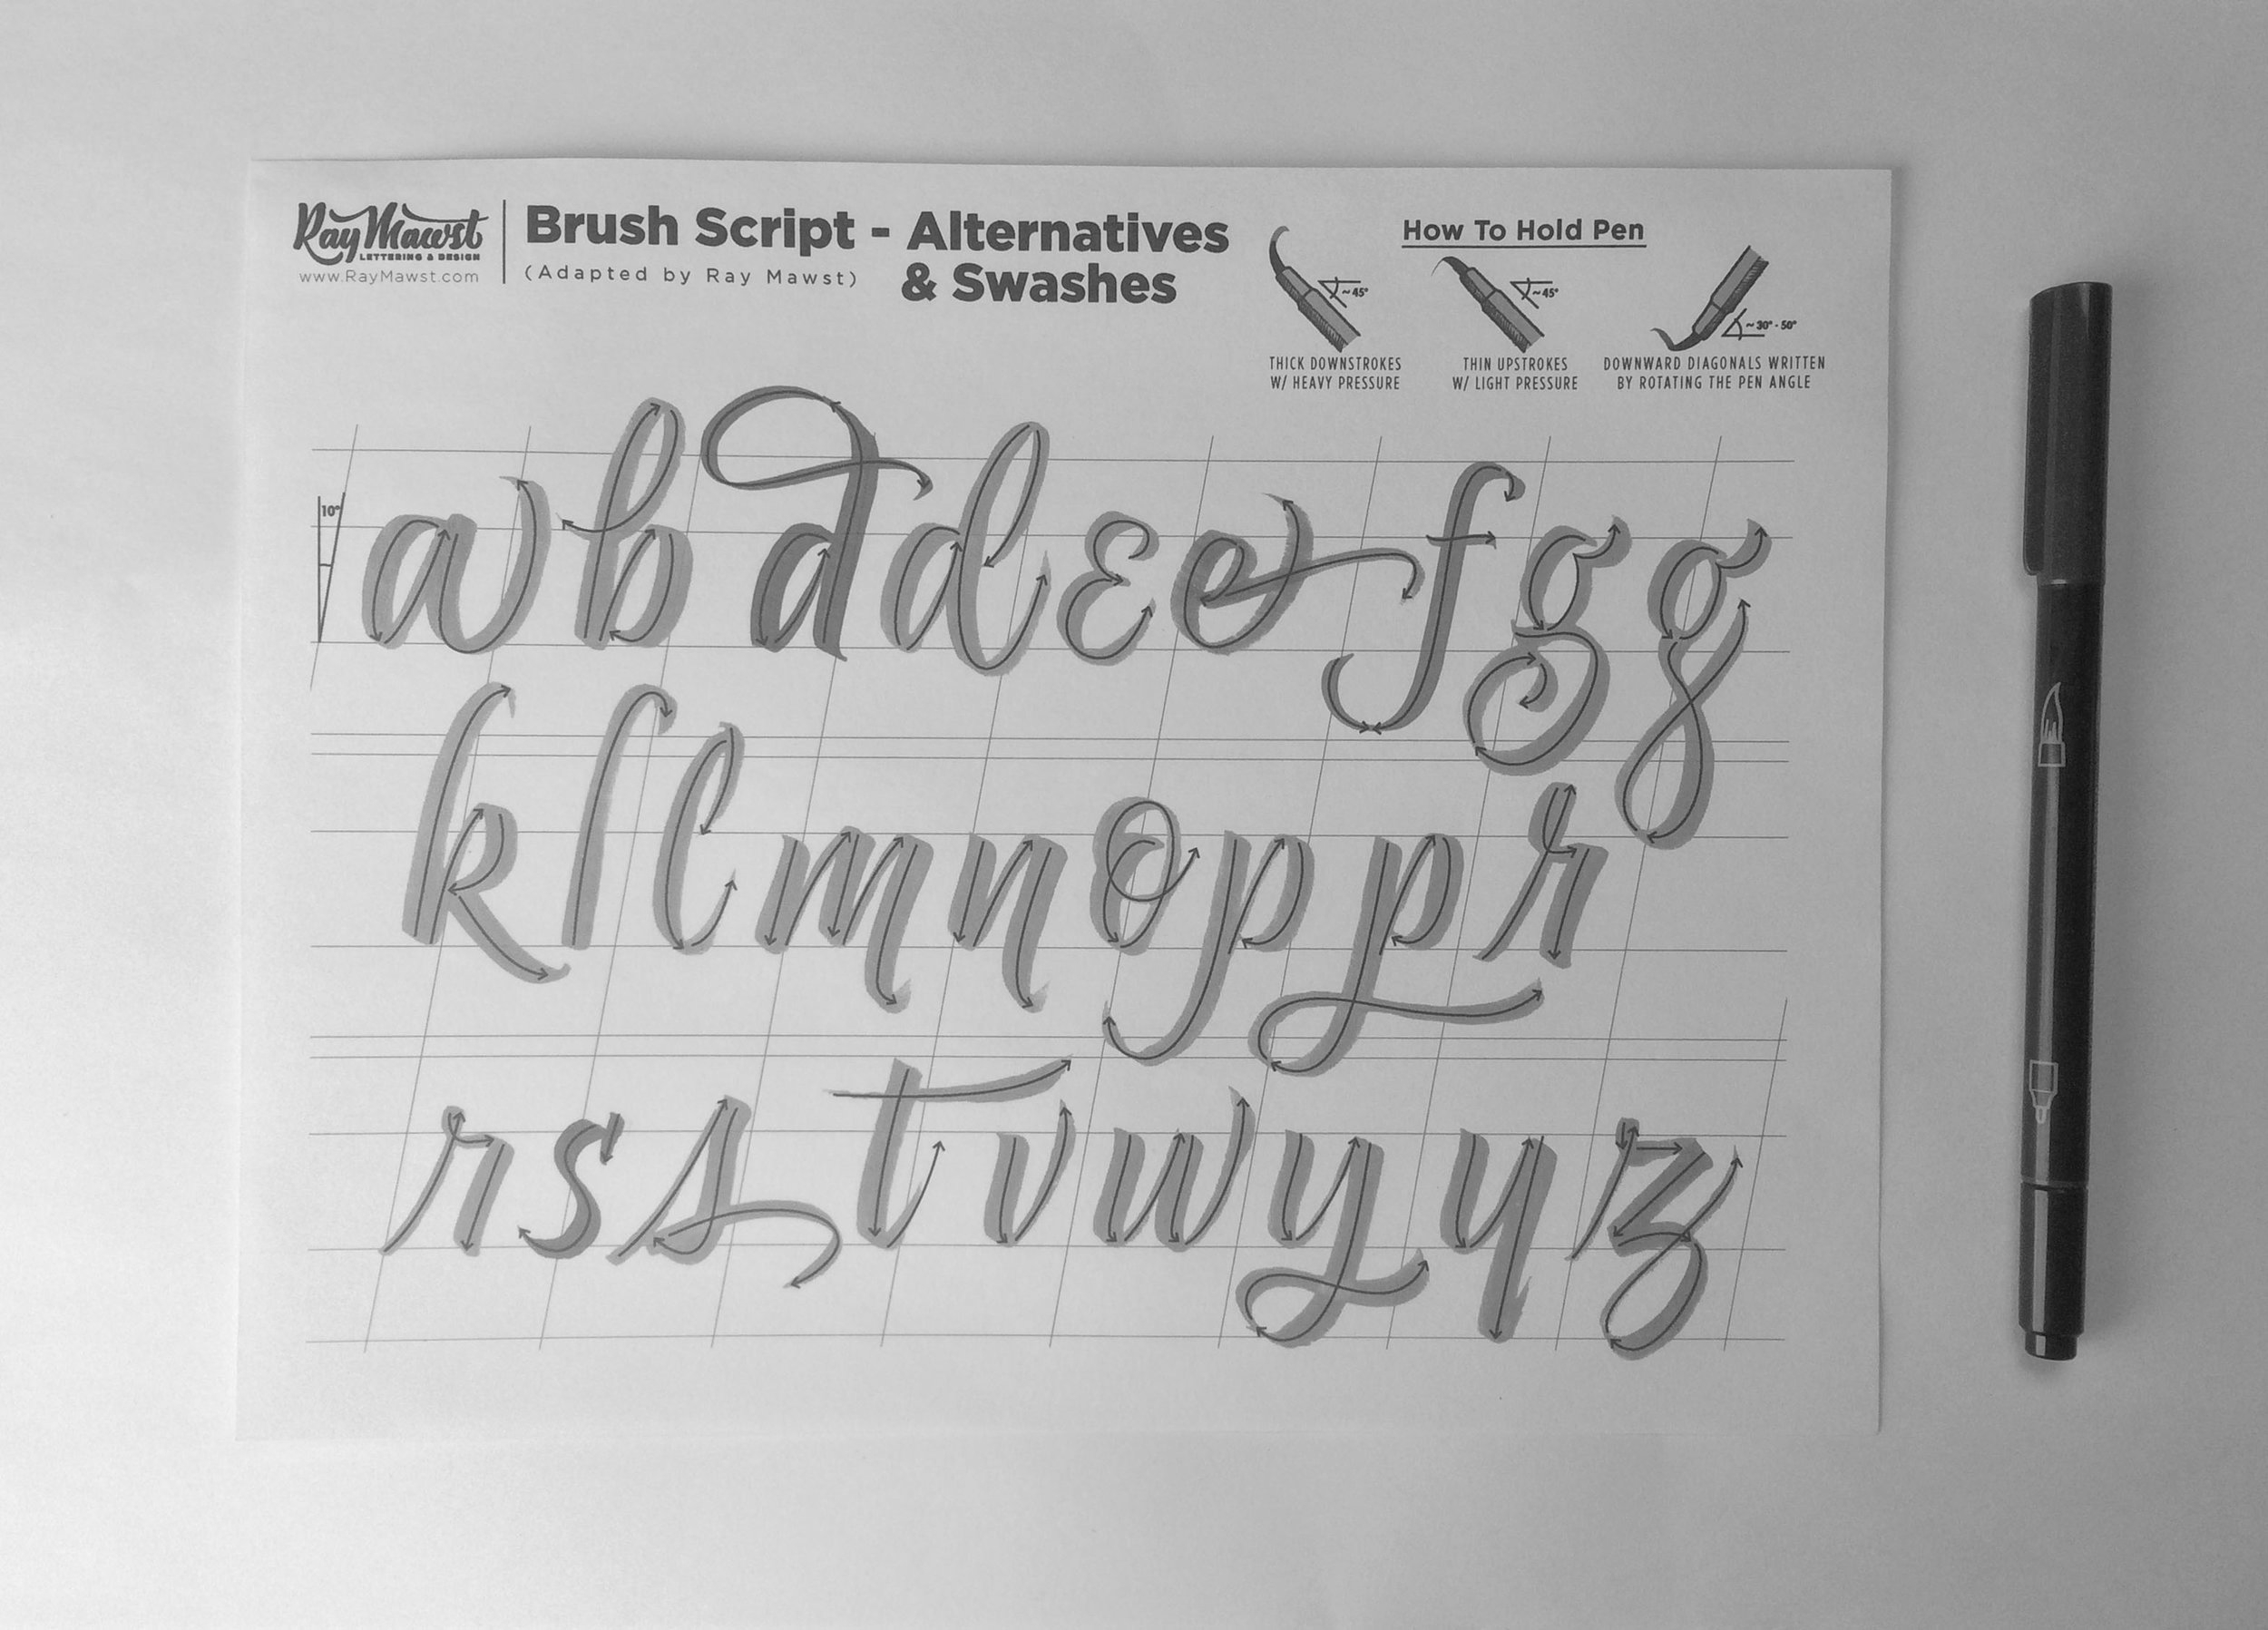 Ray Mawst
LETTERING & DESIGN
www.RayMawst.com
Brush Script - Alternatives
& Swashes
(Adapted by Ray Mawst)
How To Hold Pen
~45°
~45°
~30° - 50°
THICK DOWNSTROKES
W/ HEAVY PRESSURE
THIN UPSTROKES
W/ LIGHT PRESSURE
DOWNWARD DIAGONALS WRITTEN
BY ROTATING THE PEN ANGLE
10°
a b d d e e f g g
k l l m n o p p r
r s s t v w y y z